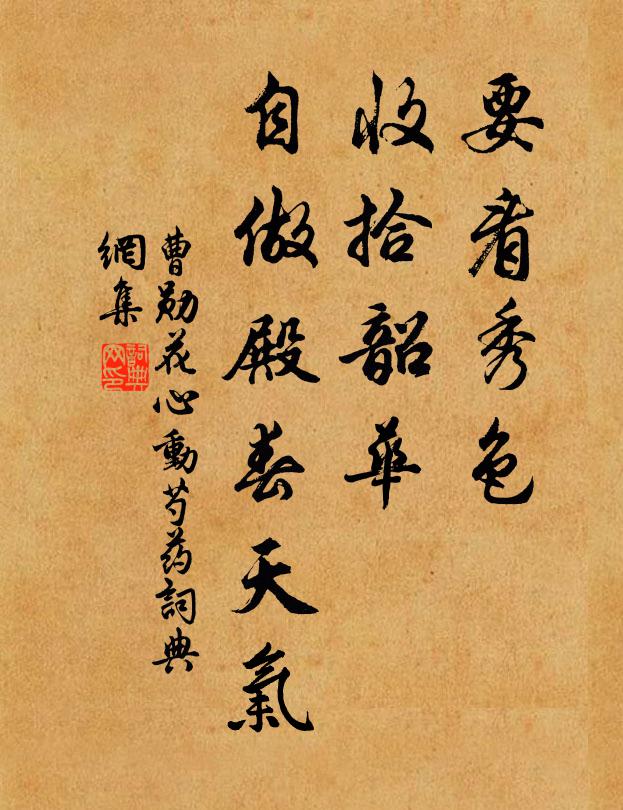 要看秀色
收拾韶華
自做殿春天氣
曹勛花心動芍药詞典
網集
詞典網印